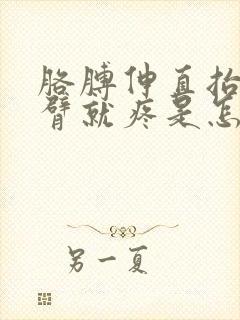 胳膊伸直抬
臂就疼是怎
另一夏